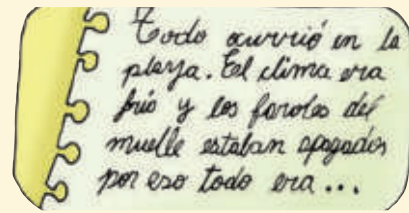 Todo ocurrió en la
playa. El clima era
frío y los faroles del
muelle estaban apagados
por eso todo era...